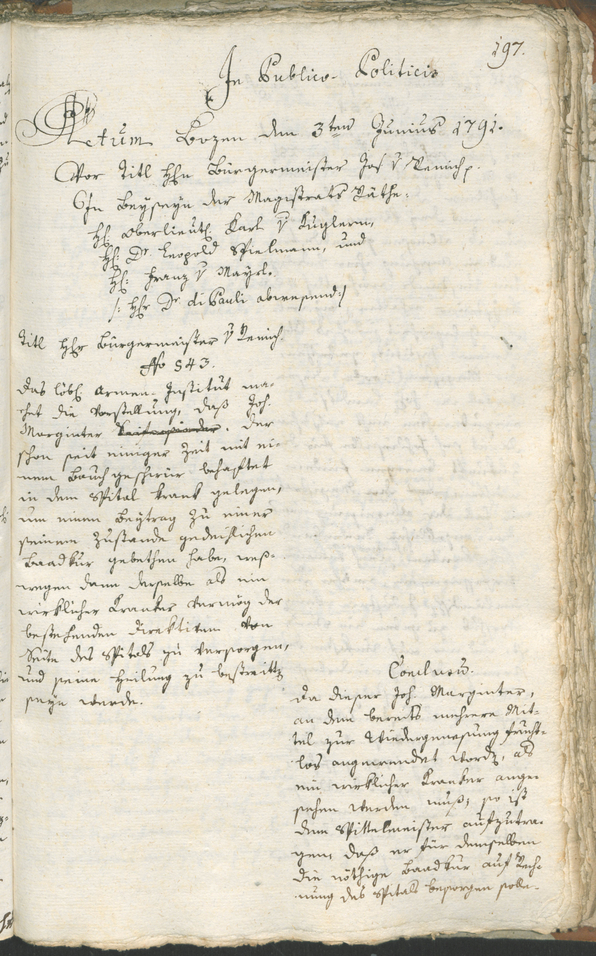 197.
In Publico-Politicis
Actum Bozen den 3ten Junius 1791.
Vor Titl Hhn Bürgermeister Jos. v Remich p.
In Beyseyn der Magistrats Räthe.
Hh. Oberlieut. Karl v Kuglern,
Hh. Dr. Leopold Spielmann, und
Hh. Franz v Mayrl.
/: Hhr Dr. di Pauli abwesend :/
Titl Hhr Bürgermeister v Remich.
No 543.
Das löbl. Armen-Institut ma-
chet die Vorstellung, daß Joh.
Marginter der
schon seit einiger Zeit mit ei-
nem Bauchgeschwür behaftet
in dem Spital krank gelegen,
um einen Beytrag zu einer
seinem Zustande gedeihlichen
Baadkur gebethen habe, weß-
wegen dann derselbe als ein
wirklicher Kranker vermög der
bestehenden Direktiven von
Seite des Spitals zu versorgen,
und seine Heilung zu bestreitten
seyn werde.
Conclusum.
Da dieser Joh. Marginter,
an dem bereits mehrere Mit-
tel zur Wiedergenesung frucht-
los angewendet worden, als
ein wirklicher Kranker ange-
sehen werden muß; so ist
dem Spittelmeister aufzutra-
gen, daß er für denselben
die nöthige Baadkur auf Rech-
nung des Spitals besorgen solle.